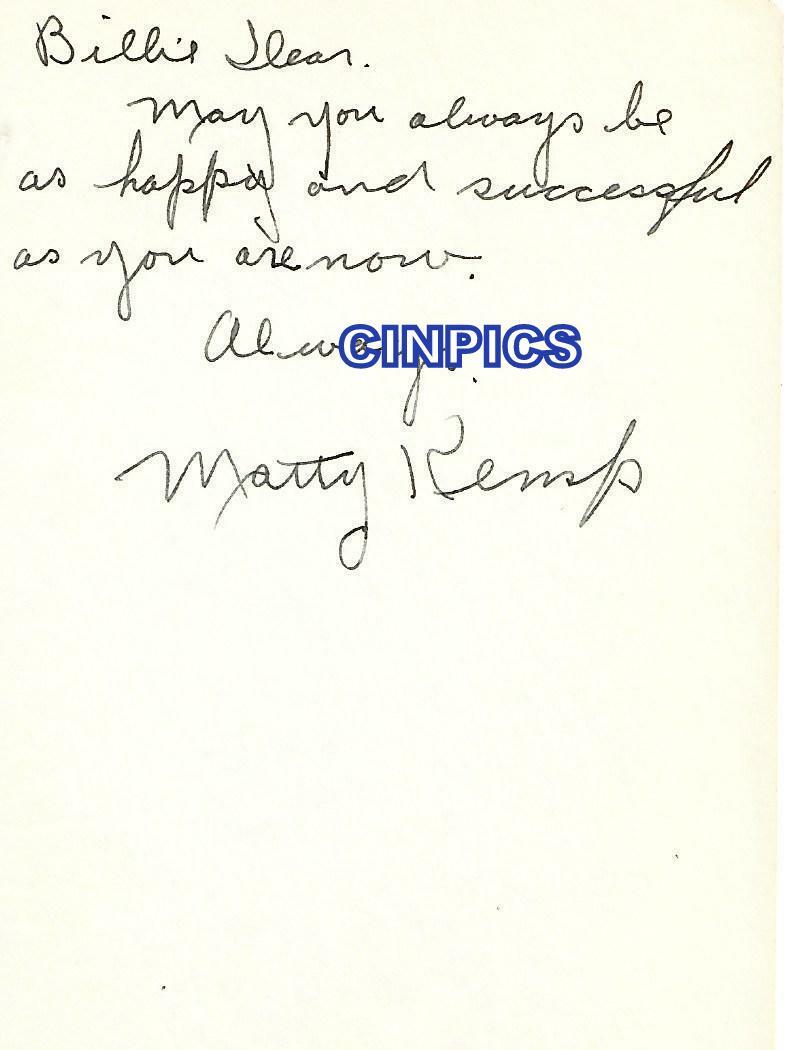 Billie Dear.
May you always be
as happy and successful
as you are now.
Always.
CINPICS
Matty Kemp